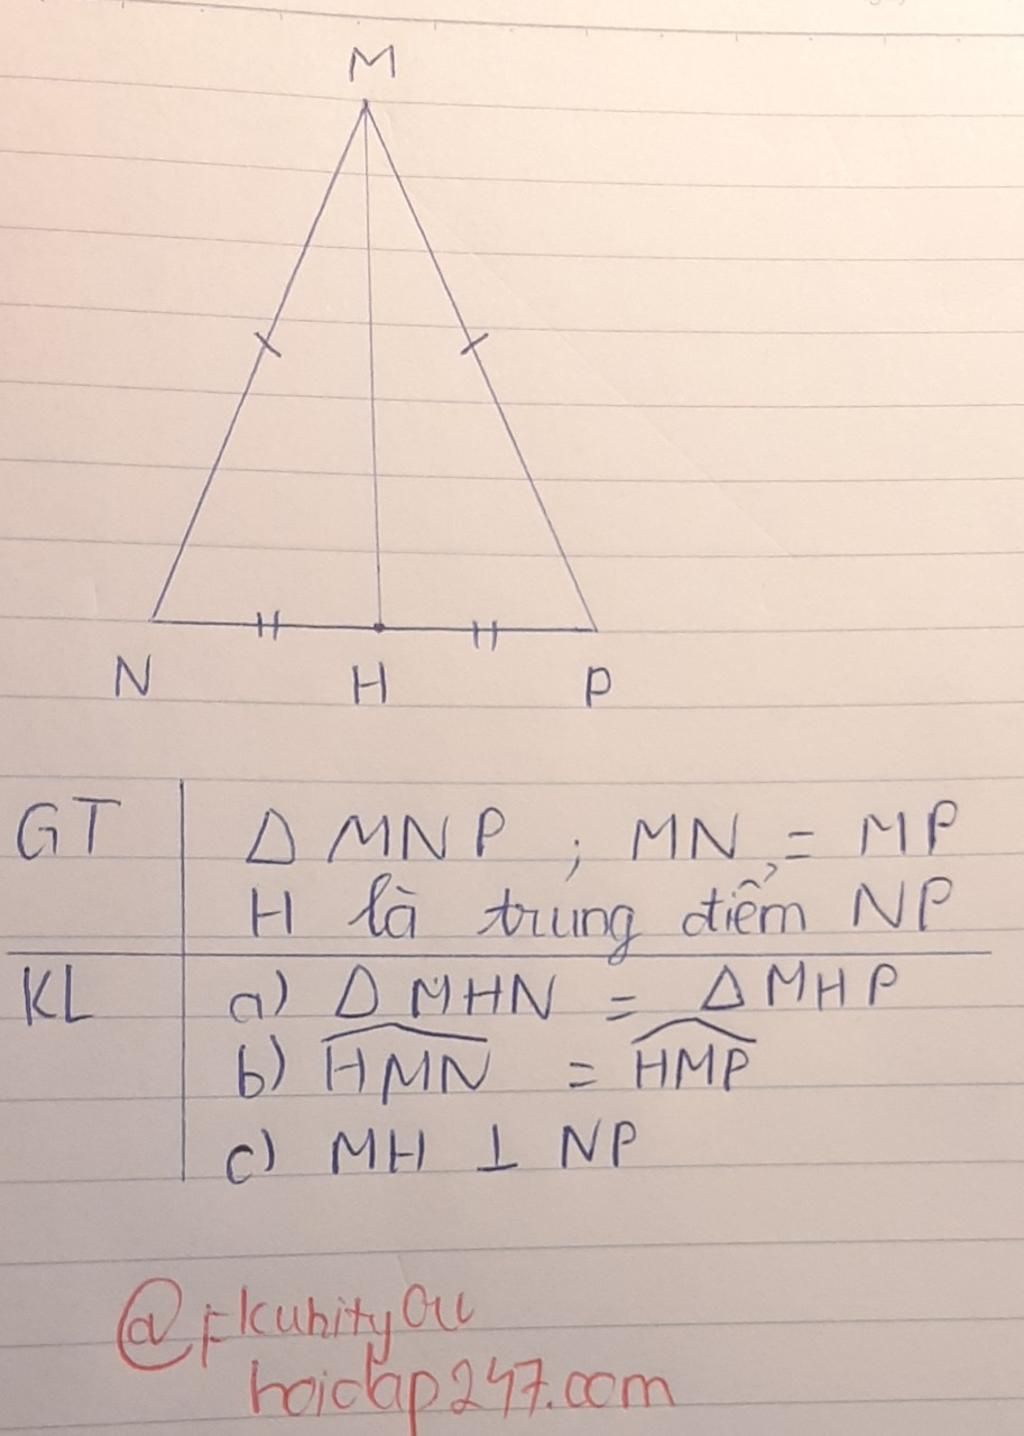 M
N H P
GT Δ MNP ; MN = MP
H là trung điểm NP
KL a) Δ MHN = Δ MHP
b) HMN = HMP
c) MH ⊥ NP
hoidap247.com